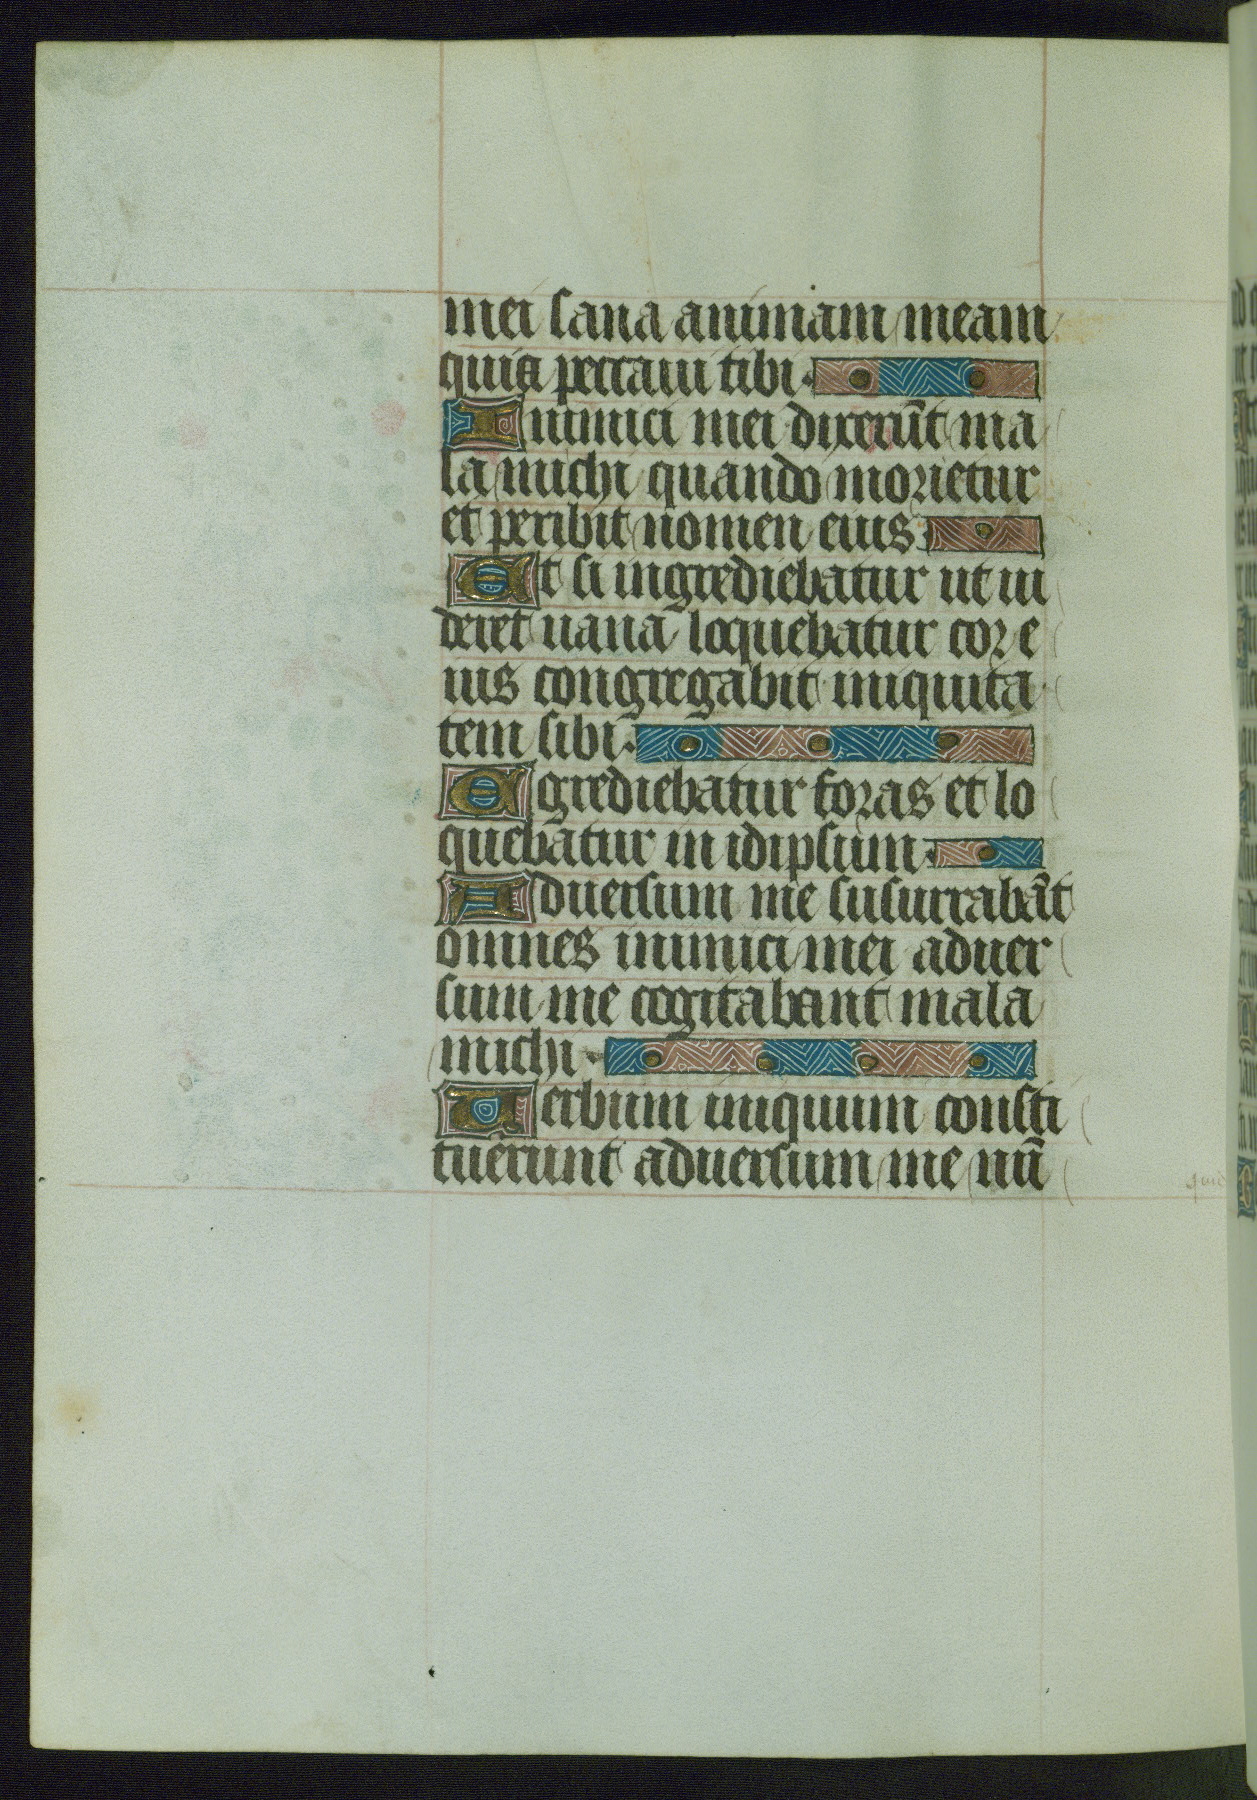 mei sana animam meam
quia peccaui tibi.
Inimici mei dixerūt ma
la michi quando morietur
et peribit nomen eius.
Et si ingrediebatur ut ui
deret uana loquebatur cor e
ius congregabit iniquita
tem sibi.
Egrediebatur foras et lo
quebatur in idipsum.
Aduersum me susurrabāt
omnes inimici mei aduer
sum me cogitabant mala
michi.
Uerbum iniquum consti
tuerunt aduersum me nū